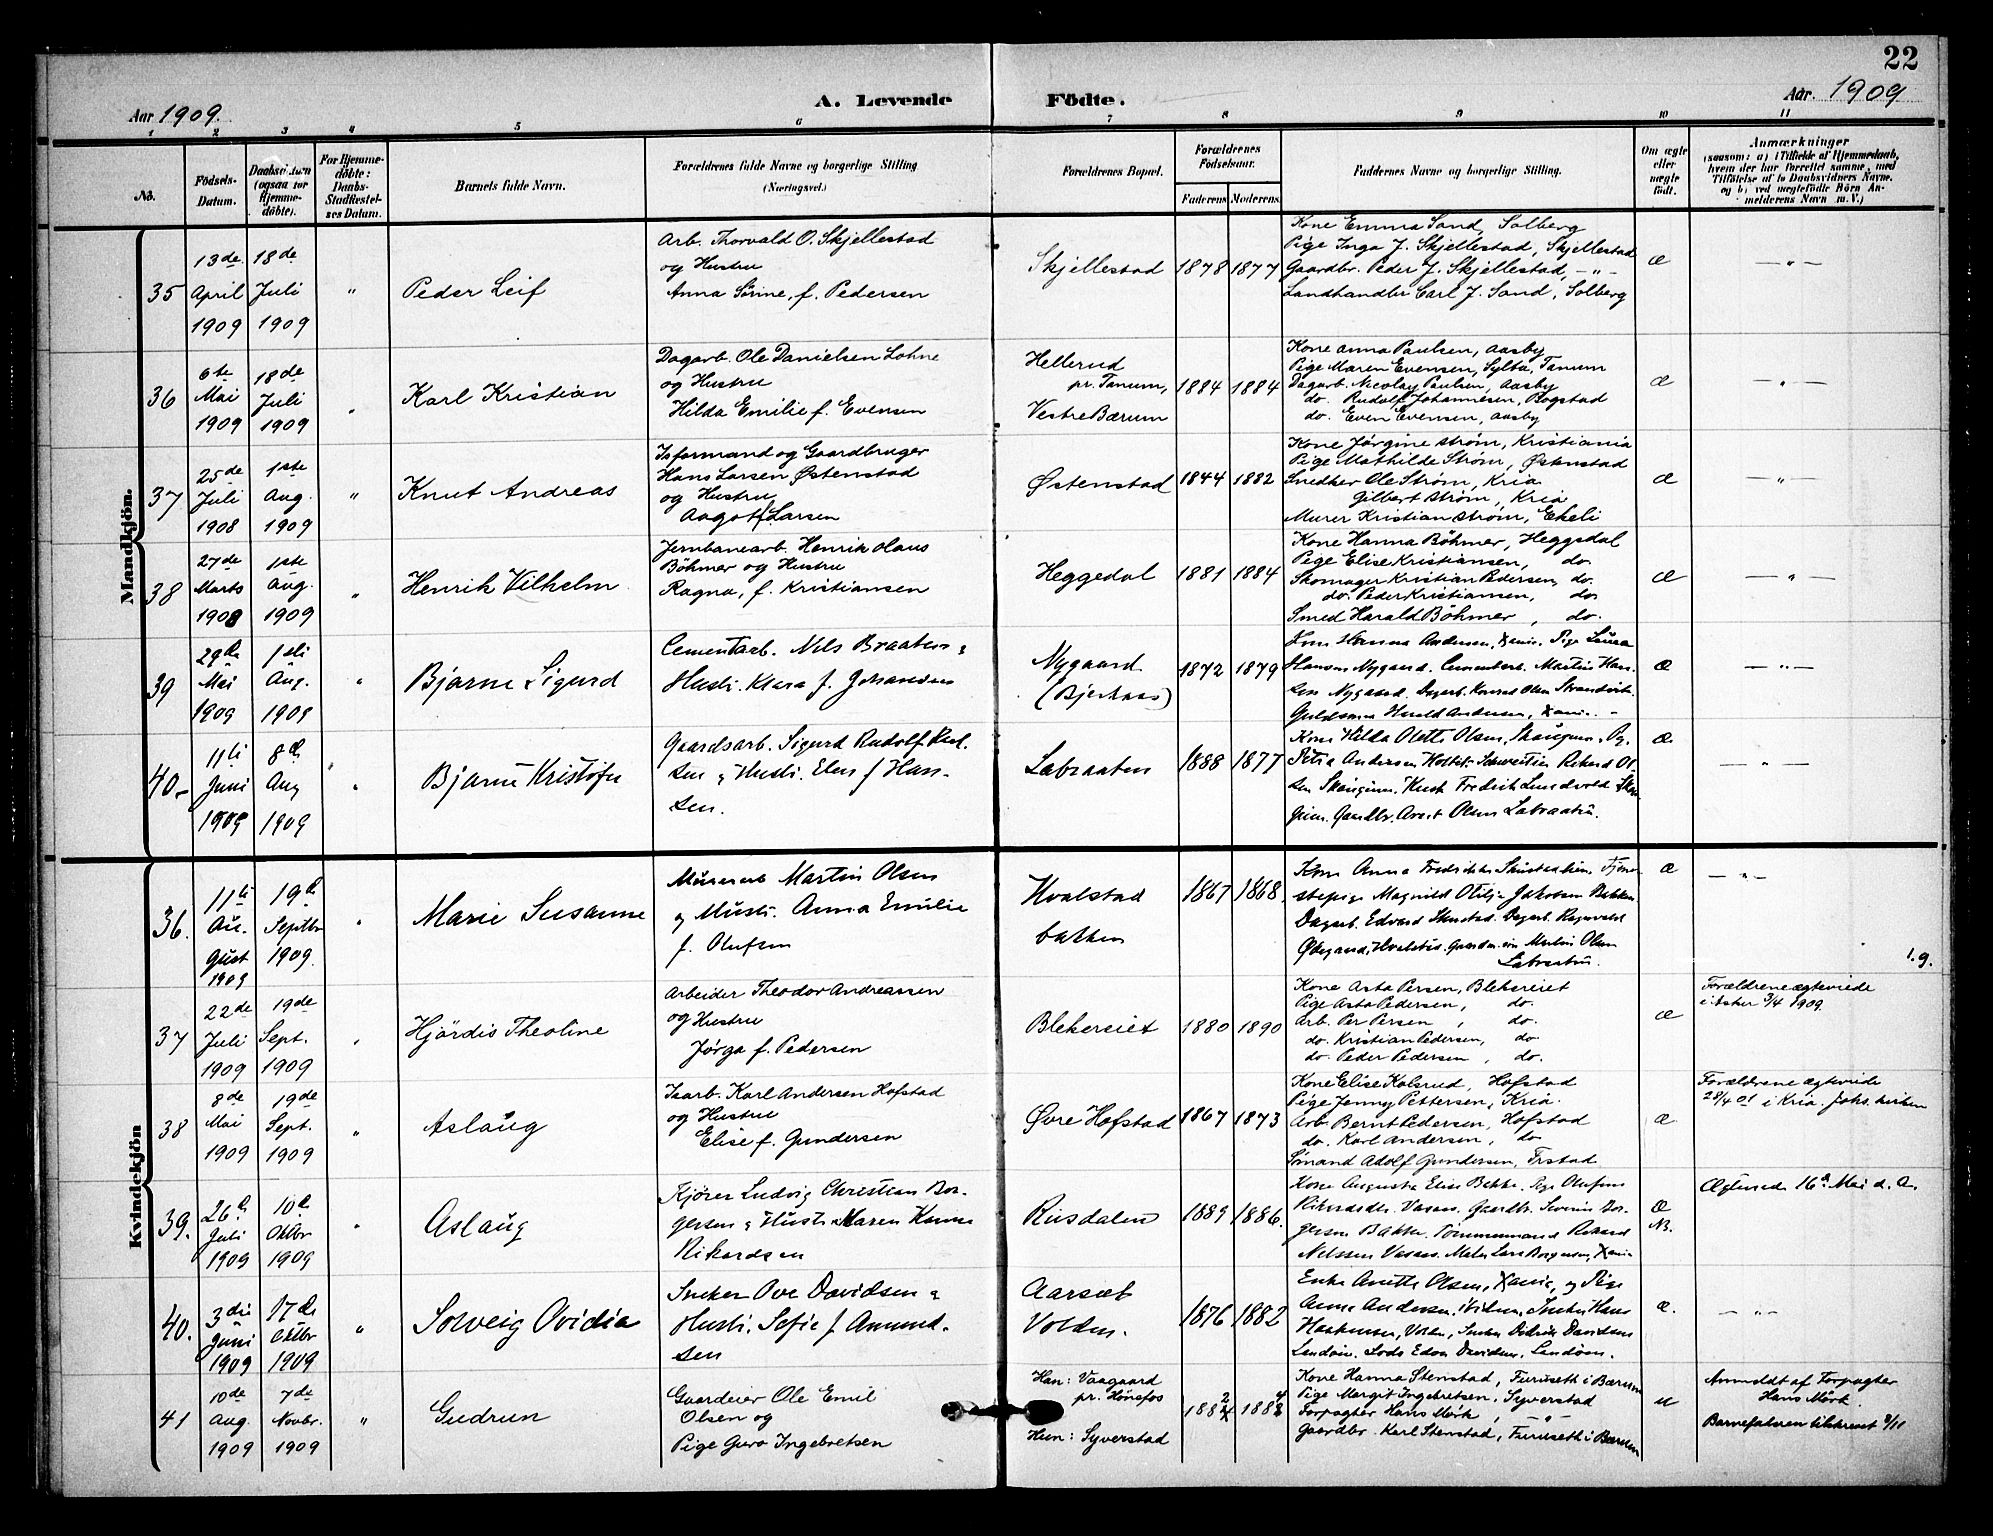 22
Aar 1909.
A. Levende
Födte.
Aar. 1909
1 2 3 4 5 6 7 8 9 10 11
No.
Födsels-
Datum.
Daabsdatum
(ogsaa for
Hjemme-
döbte).
For Hjemme-
döbte:
Daabs-
Stadfæstel-
ses Datum.
Barnets fulde Navn.
Forældrenes fulde Navne og borgerlige Stilling
(Næringsvei.)
Forældrenes Bopæl.
Forældrenes
Födselsaar.
Faderens Moderens
Faddernes Navne og borgerlige Stilling.
Om ægte
eller
uægte
födt.
Anmærkninger
(saasom: a) i Tilfælde af Hjemmedaab,
hvem der har forrettet samme, med
Tilföielse af to Daabsvidners Navne,
og b) ved uægtefödte Börn An-
melderens Navn m. V.)
Mandkjön.
35
13de
April
1909
18de
Juli
1909
"
Peder Leif
Arb. Thorvald O. Skjellestad
og Hustru
Anna Sörine, f. Pedersen
Skjellestad
1878 1877
Kone Emma Sand, Solberg
Pige Inga J. Skjellestad, Skjellestad
Gaardbr. Peder J. Skjellestad, — " —
Landhandler Carl J. Sand, Solberg
æ
— " —
36
6te
Mai
1909
18de
Juli
1909
"
Karl Kristian
Dagarb. Ole Danielsen Lohne
og Hustru
Hilda Emilie f. Evensen
Hellerud
pr. Tanum,
Vestre Bærum
1884 1884
Kone Anna Paulsen, Aasby
Pige Maren Evensen, Sylta, Tanum
Dagarb. Nicolay Paulsen, Aasby
do. Rudolf Johannesen, Bogstad
do. Even Evensen, Aasby
æ
— " —
37
25de
Juli
1908
1ste
Aug.
1909
"
Knut Andreas
Isformand og Gaardbruger
Hans Larsen Østenstad
og Hustru
Aagot f. Larsen
Østenstad
1844 1882
Kone Jørgine Strøm, Kristiania
Pige Mathilde Strøm, Østenstad
Snedker Ole Strøm, Kria
Gilbert Strøm, Kria
Murer Kristian Strøm, Ekeli
æ
— " —
38
27de
Marts
1908
1ste
Aug.
1909
"
Henrik Vilhelm
Jernbanearb. Henrik Olaus
Böhmer og Hustru
Ragna, f. Kristiansen
Heggedal
1881 1884
Kone Hanna Böhmer, Heggedal
Pige Elise Kristiansen, do.
Skomager Kristian Pedersen, do.
do. Peder Kristiansen, do
Smed Harald Böhmer, do.
æ
— " —
39
29de
Mai
1909
1ste
Aug.
1909
"
Bjarne Sigurd
Cementarb. Nils Braaten &
Hustr. Klara f. Johansen
Nygaard
1872 1879
Hanna Andersen, Pige Laura
Hansen Nygaard. Cementarb. Martin Han-
sen Nygaard. Dagarb. Konrad Olsen
Harald Andersen,
æ
— " —
40
11te
Juni
1909
8de
Aug
1909
"
Bjarne Kristofer
Gaardsarb. Sigurd Rudolf Karl-
sen & Hustr. Elen f. Han-
sen.
Labraaten
1888 1877
Kone Hilda Olette Olsen, Skaugum. Pg.
Petra Andersen Rikard Ol-
sen Skaugum. Kusk Fredrik
gum. Gaardbr. Olsen Labraaten.
æ
— " —
Kvindekjön
36.
11te
Au-
gust
1909
19de
Septbr
1909.
"
Marie Susanne
Murerarb Martin Olsen
& Hustr. Anna Emilie
f. Olufsen
Hvalstad
bakken
1867 1868
Kone Anna Fredrikke
stepige Magnild Otilje Jakobsen Bakken
Dagarb. Edvard Dagarb. Ragnvald
Hvalstad. Martin Olsen
Labraaten.
æ
— " —
1.9.
37
22de
Juli
1909
19de
Sept.
1909
"
Hjördis Theoline
Arbeider Theodor Andreassen
og Hustru
Jørga f. Pedersen
Blekersiet
1880 1890
Kone Asta Persen, Blekersiet
Pige Asta Pedersen, do.
Arb. Per Persen, do.
do. Kristian Pedersen, do
do. Peder Pedersen, do.
æ
Forældrene ægteviede
i Asker 3/4 1909.
38
8de
Mai
1909
19de
Sept.
1909
"
Aslaug
Isarb. Karl Andersen Hofstad
og Hustru
Elise f. Gundersen
Øvre Hofstad
1867 1873
Kone Elise Kolsrud, Hofstad
Pige Jenny Pettersen, Kria.
Arb. Bernt Pedersen, Hofstad
do. Karl Andersen, do
Sömand Adolf Gundersen,
æ
Forældrene ægteviede
28/4 01 i Kria. Johs. kirken
39.
26de
Juli
1909
10de
Oktbr
1909
"
Aslaug
Kjörer Ludvig Christian Bor-
gersen & Hustr Maren
Rikardsen
Riisdalen
1889 1886.
Kone Augusta Elise Bakke. Pige
Gaardbr. Severin Bor-
gersen Bakke. Tömmermand Rikard
Nelssen Maler Lars Borgersen,
Æ
NB.
Ægteviede 16de Mai d. A.
40.
3die
Juni
1909
17de
Oktbr
1909
"
Solveig Ovidia
Sneker Ove Davidsen &
Hustr. Sofie f. Amund-
sen
Aarsæt
Volden.
1876 1882
Enke Anette Olsen, og Pige
Anna Andersen, Sneker Hans
Haakensen, Volden, Sneker Didrik Davidsen
Landöen. Lods Edon Davidsen, Landöen.
æ.
— " —
41
10de
Aug.
1909
7de
Novbr.
1909
"
Gudrun
Gaardeier Ole Emil
Olsen og
Pige Guro Ingebretsen
Han: Vaagaard
pr. Hönefos
Hun: Syverstad
1882 1884
Kone Hanna Stenstad, Furuseth i Bærum
Pige Margit Ingebretsen, Syverstad
Forpagter Hans Mørk, — " —
Gaardbr. Karl Stenstad, Furuseth i Bærum
u
Anmeldt af Forpagter
Hans Mørk.
Barnefaderen tilskrevet 8/11